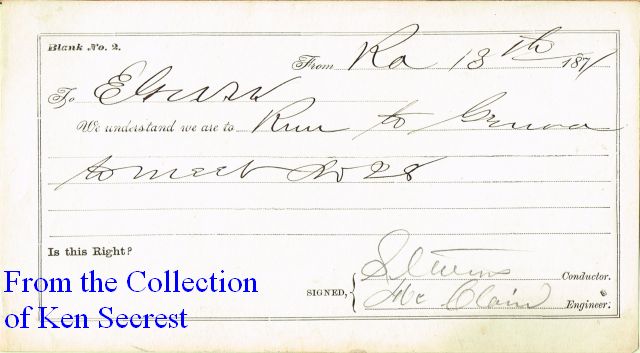 Blank No. 2.
From Ra 13th 1871
To
We understand we are to Run to Genoa
to meet No 28
Is this Right?
Stevens Conductor.
SIGNED, Mc Clain Engineer.
From the Collection
of Ken Secrest